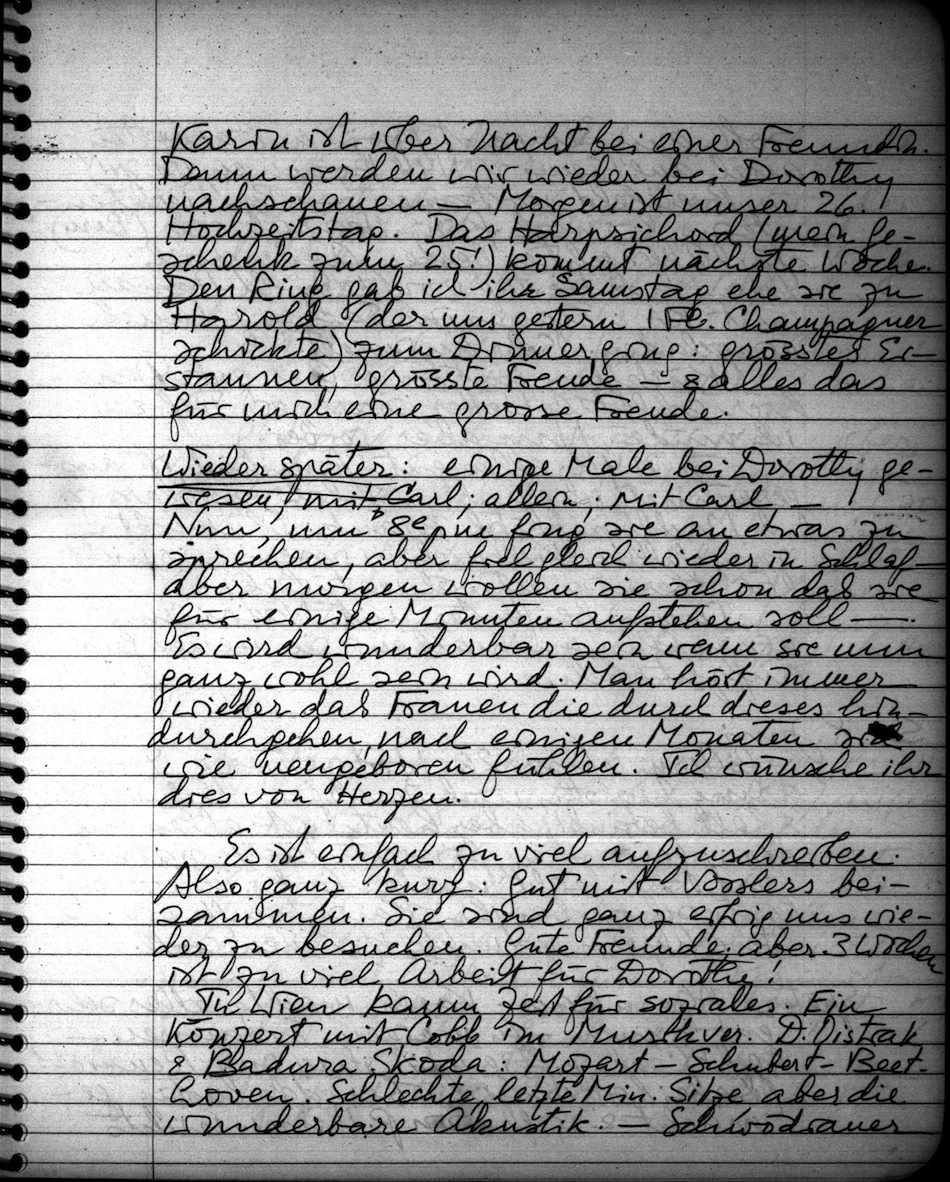 Karin ist über Nacht bei einer Freundin.
Dann werden wir wieder bei Dorothy
nachschauen — Morgen ist unser 26.
Hochzeitstag. Das Harpsichord (mein Ge-
schenk zum 25!) kommt nächste Woche.
Den Ring gab ich ihr Samstag ehe sie zu
Harold (der uns gestern 1 Fl. Champagner
schickte) zum Dinner ging: grösstes Er-
staunen, grösste Freude — & alles das
für mich eine grosse Freude.
Wieder später: einige Male bei Dorothy ge-
wesen, mit Carl; allein; mit Carl, —
Nun, um 8e pm fing sie an etwas zu
sprechen, aber fiel gleich wieder in Schlaf —
aber morgen wollen sie schon das sie
für einige Minuten aufstehen soll —.
Es wird wunderbar sein wenn sie nun
ganz wohl sein wird. Man hört immer
wieder das Frauen die durch dieses hin-
durchgehen, nach einigen Monaten
wie neugeboren fühlen. Ich wünsche ihr
dies von Herzen.
Es ist einfach zu viel aufzuschreiben.
Also ganz kurz: Gut mit Vosslers bei-
sammen. Sie sind ganz eifrig uns wie-
der zu besuchen. Gute Freunde, aber 3 Wochen
ist zu viel Arbeit für Dorothy!
In Wien kaum Zeit für soziales. Ein
Konzert mit Cobb im Musikver. D. Oistrak
& Badura Skoda: Mozart – Schubert – Beet-
hoven. Schlechte, letzte Min. Sitze aber die
wunderbare Akustik. —